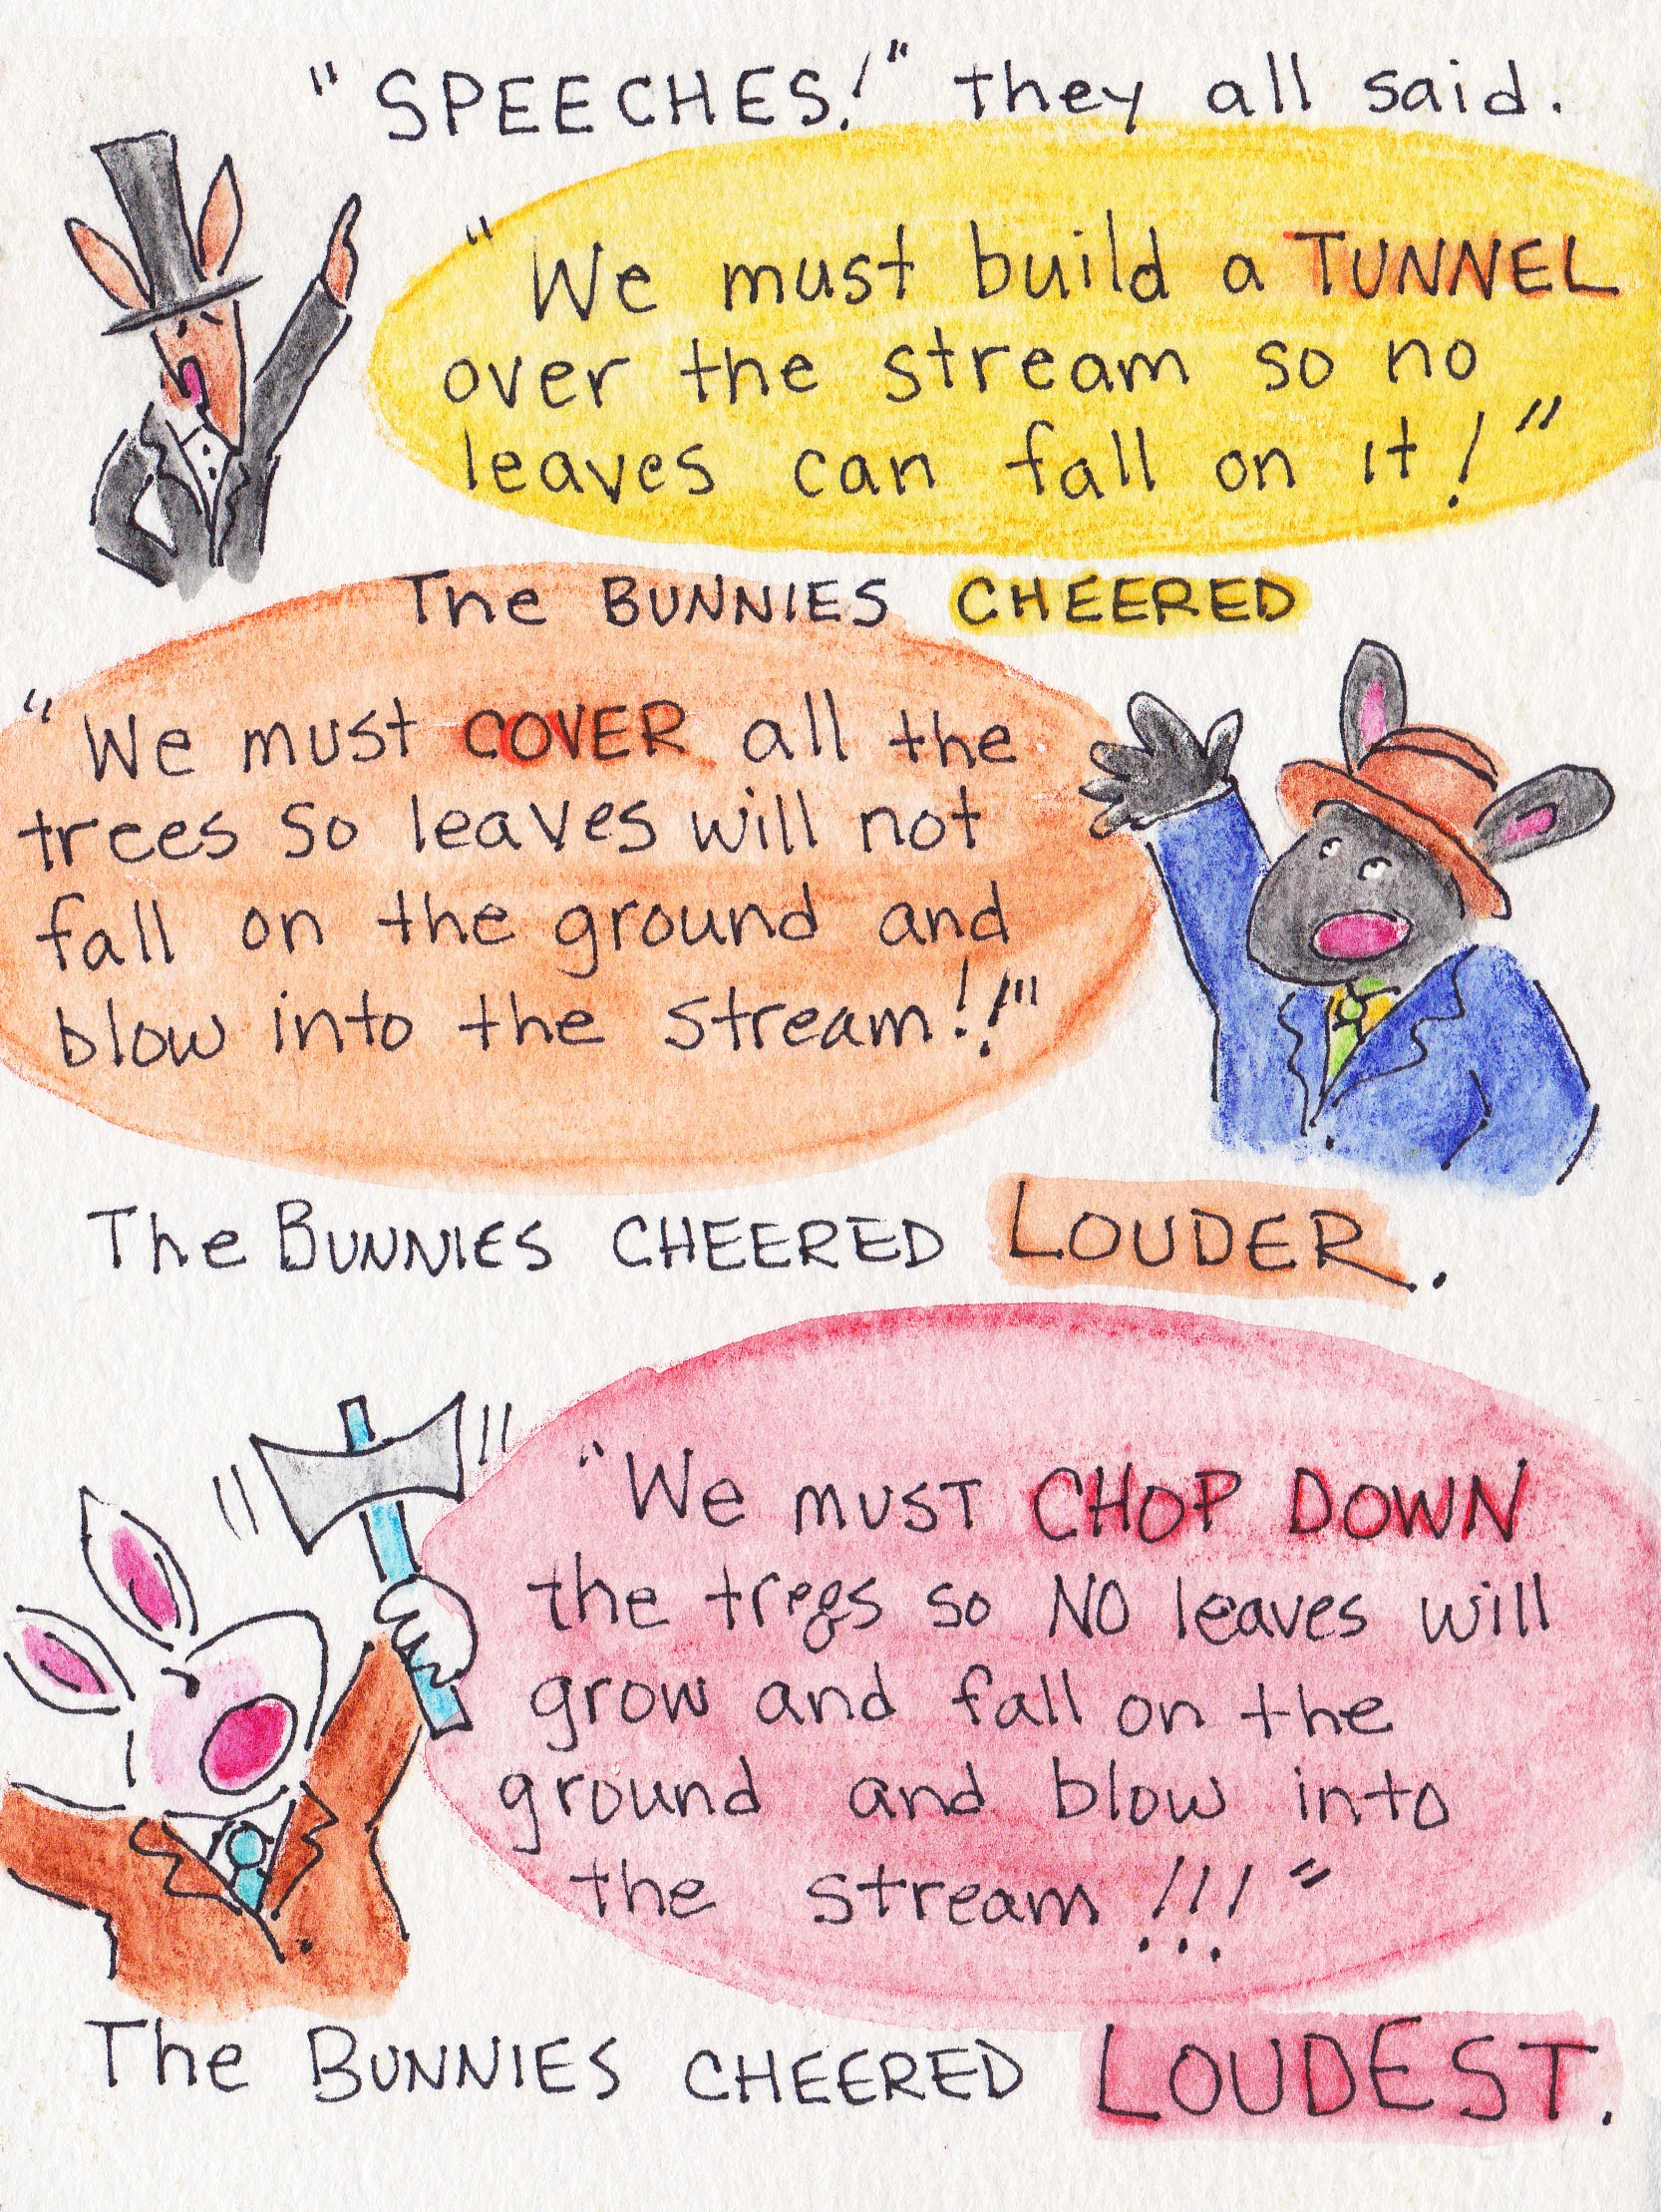 "SPEECHES!" they all said.
"We must build a TUNNEL
over the stream so no
leaves can fall on it!"
The BUNNIES CHEERED
"We must COVER all the
trees so leaves will not
fall on the ground and
blow into the stream!!"
The BUNNIES CHEERED LOUDER.
"We must CHOP DOWN
the trees so NO leaves will
grow and fall on the
ground and blow into
the stream!!!"
The BUNNIES CHEERED LOUDEST.